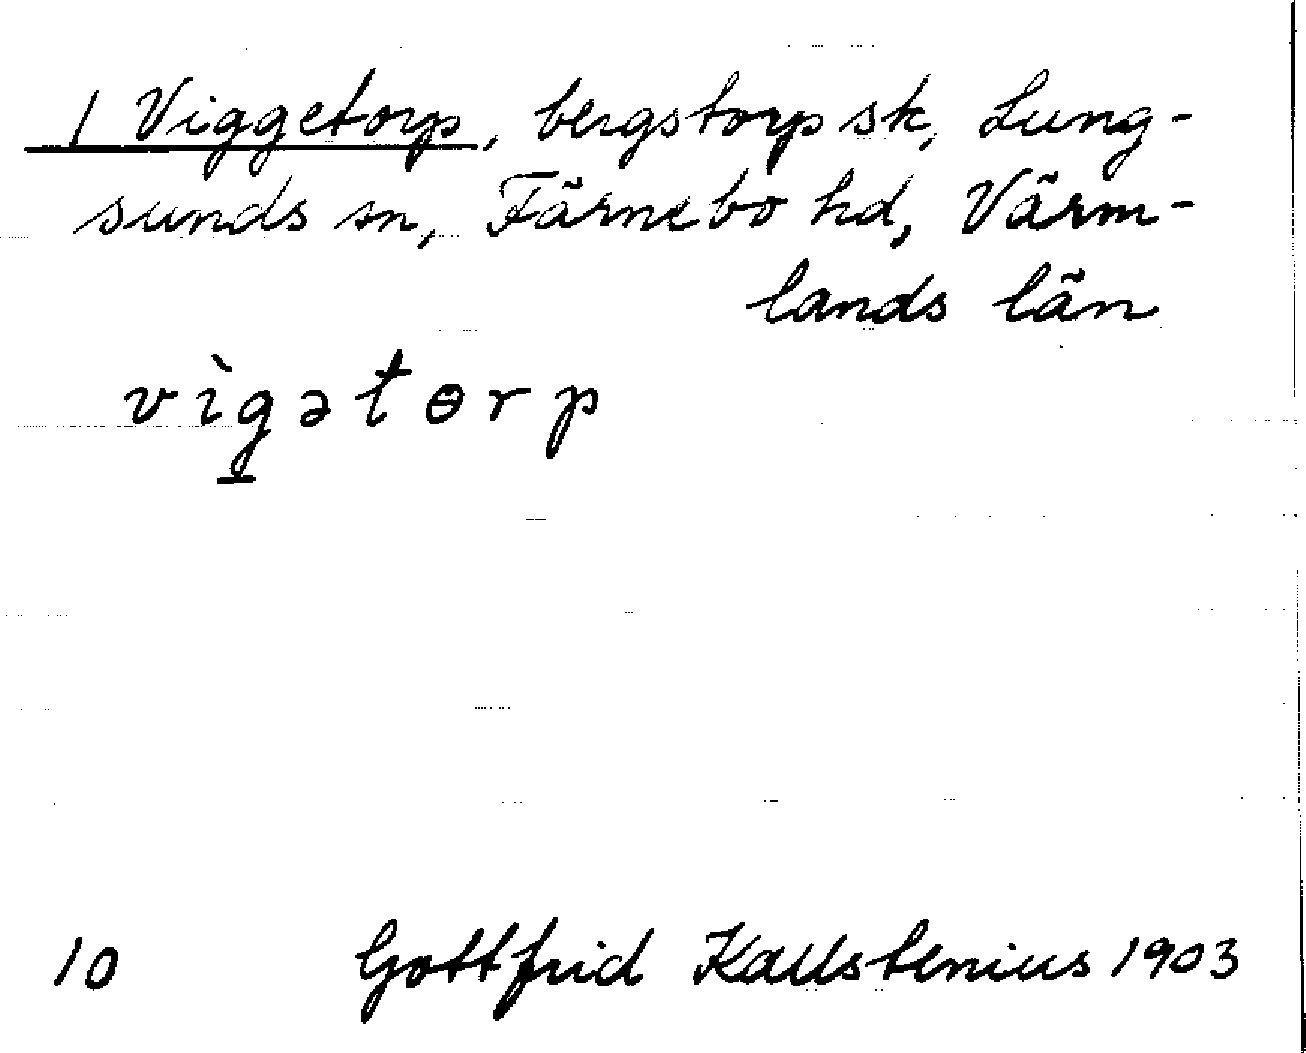 1 Viggetorp, bergstorp sk, Lung-
sunds sn, Färnebo hd, Värm-
lands län
vìg̲ətɵrp
10 Gottfrid Kallstenius 1903